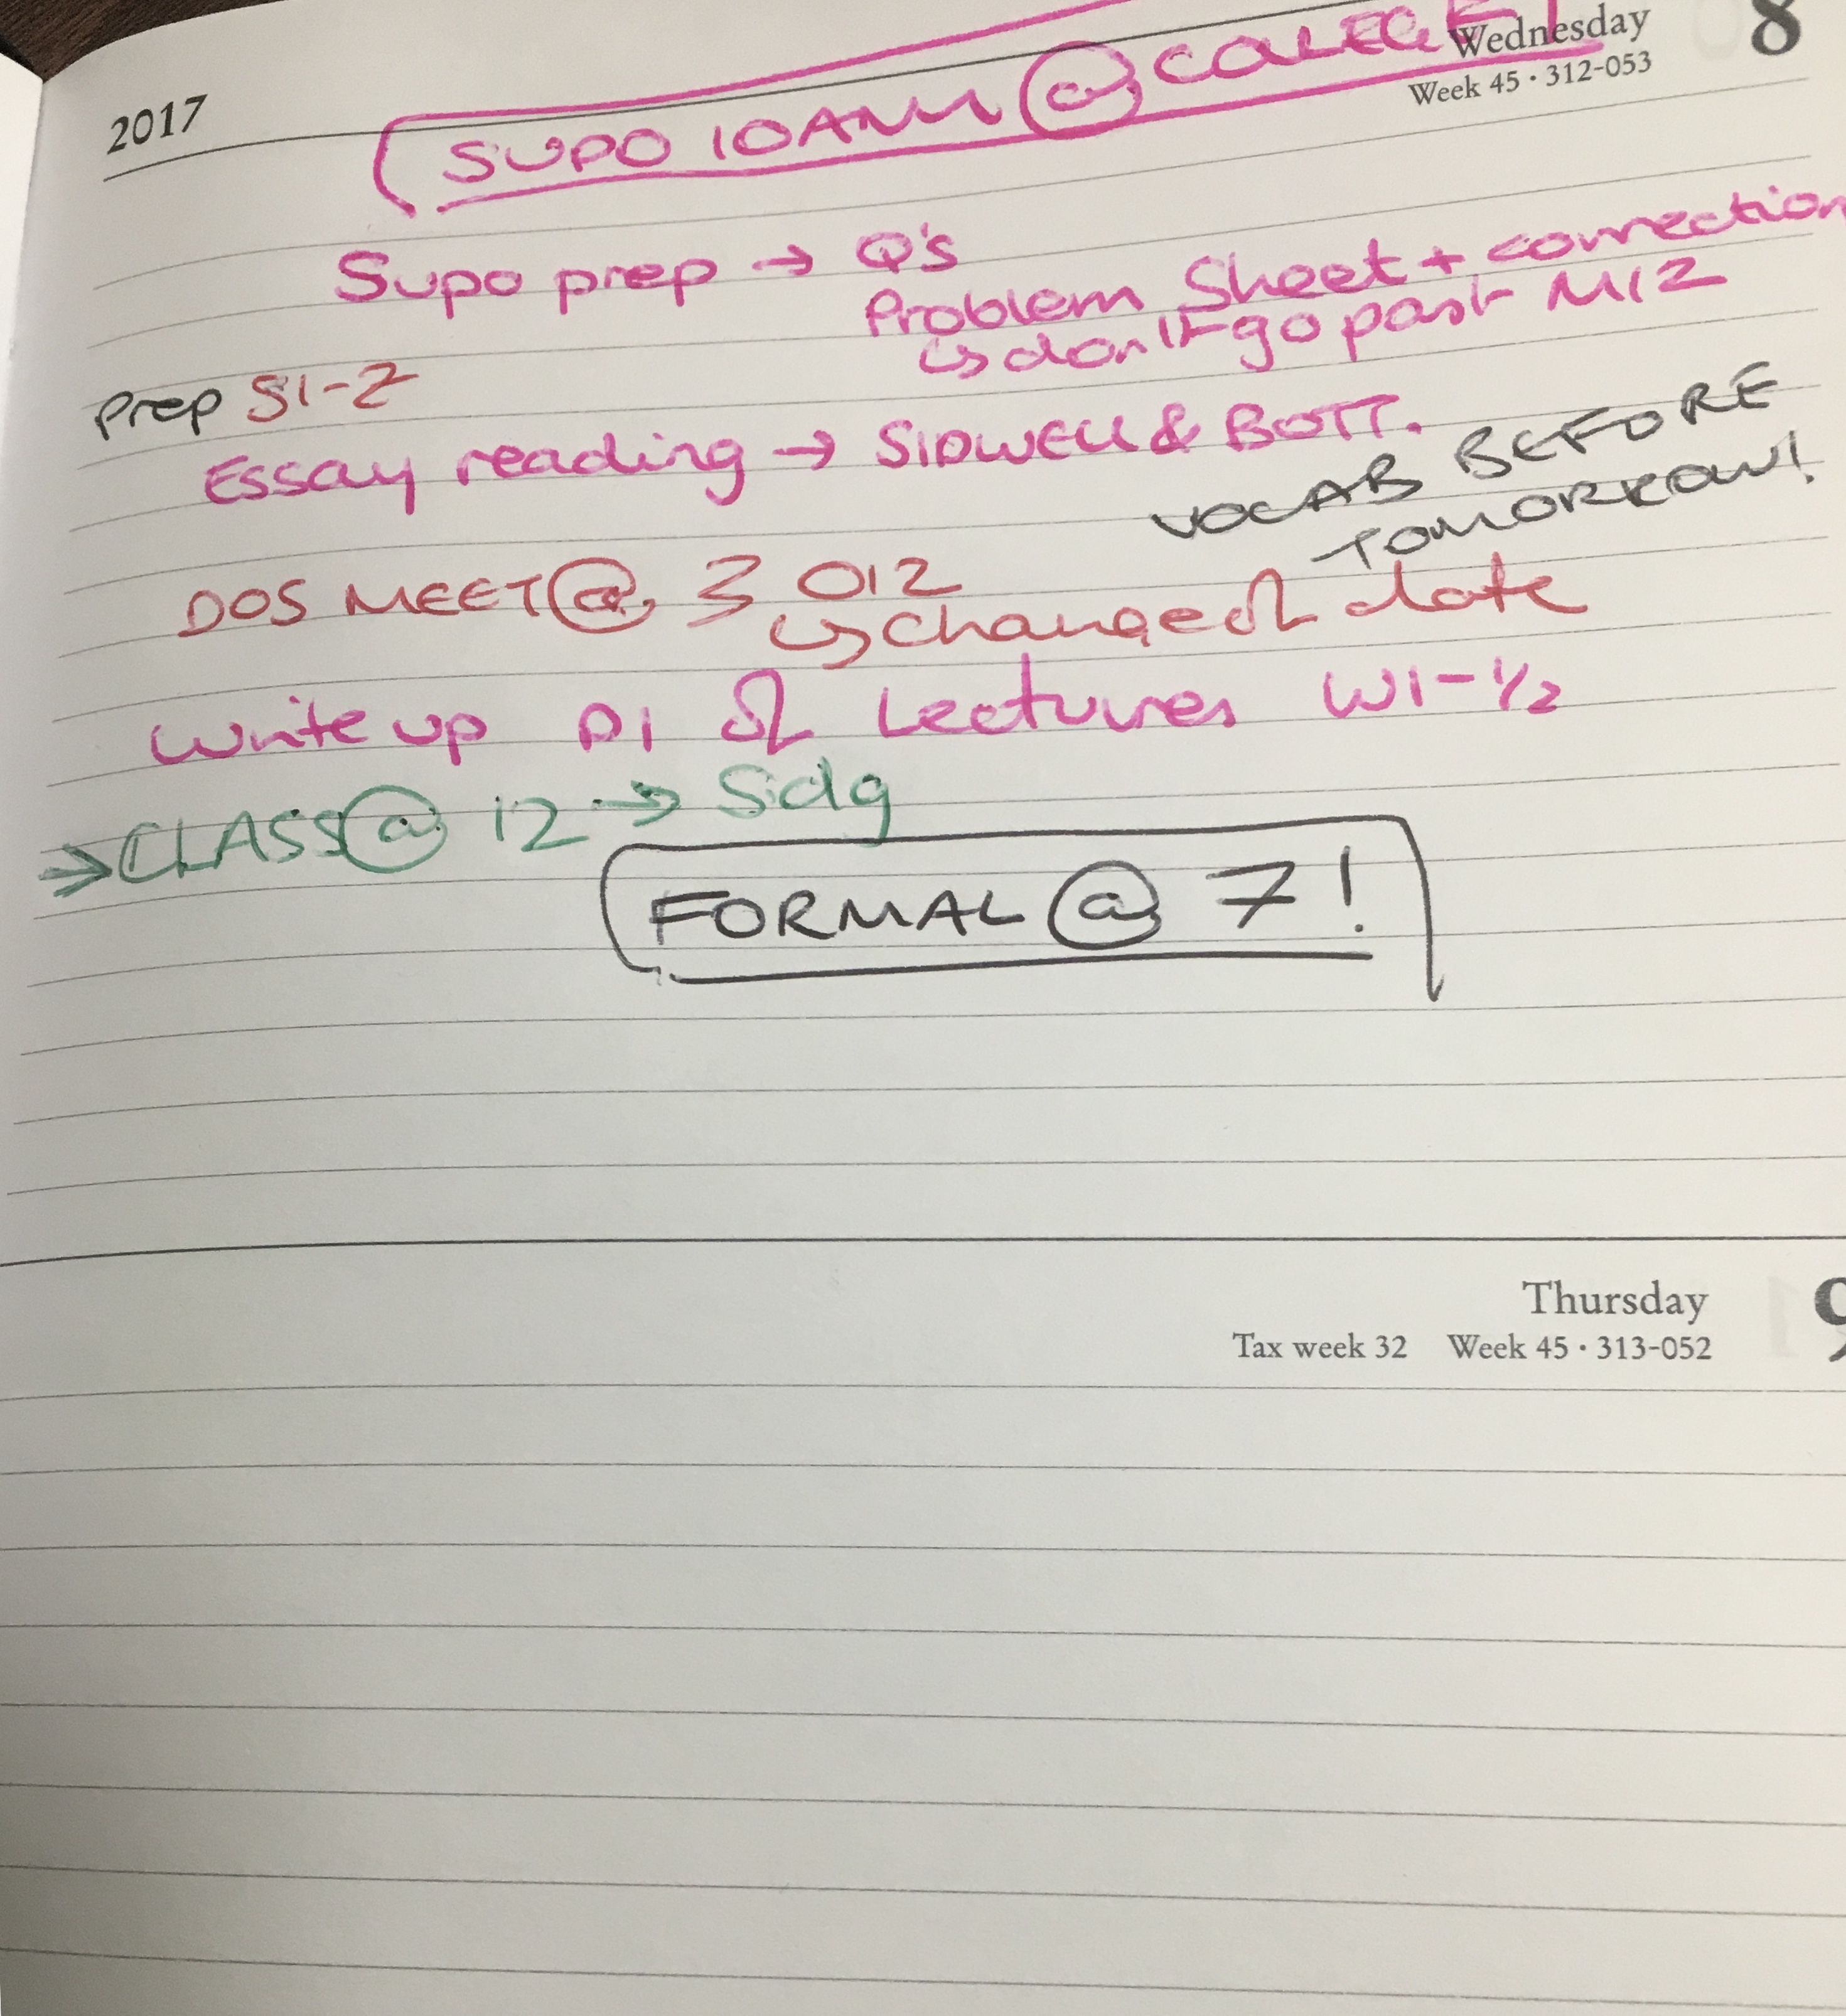 2017
Wednesday 8
Week 45 • 312-053
SUPO 10AM @ COLEGE!
Supo prep → Q's
Problem Sheet + correction
↳ don't go past M12
Prep S1-2
Essay reading → SIDWELL & BOTT.
VOCAB BEFORE
TOMORROW!
DOS MEET @ 3 O12
↳ change of date
Write up P1 of Lectures W1-1/2
→ CLASS @ 12 → Sidg
FORMAL @ 7!
Thursday 9
Tax week 32 Week 45 • 313-052